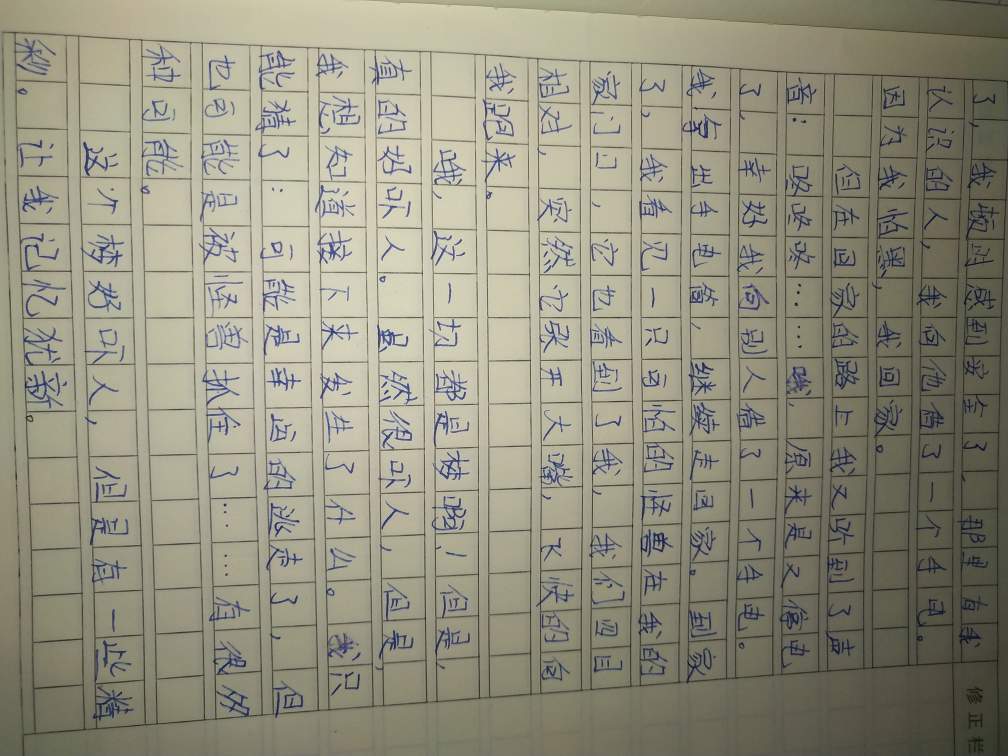 了，我顿时感到安全了，那里有我
认识的人，我向他借了一个手电。
因为我怕黑，我回家。
但在回家的路上我又听到了声
音：咚咚咚……哦，原来是又停电
了，幸好我向别人借了一个手电。
我拿出手电筒，继续走回家。到家
了，我看见一只可怕的怪兽在我的
家门口，它也看到了我，我们四目
相对，突然它张开大嘴，飞快的向
我跑来。
哦，这一切都是梦啊！但是，
真的好吓人。虽然很吓人，但是，
我想知道接下来发生了什么。我只
能猜了：可能是幸运的逃走了，但
也可能是被怪兽抓住了……有很多
种可能。
这个梦好吓人，但是有一些精
彩。让我记忆犹新。
修正栏